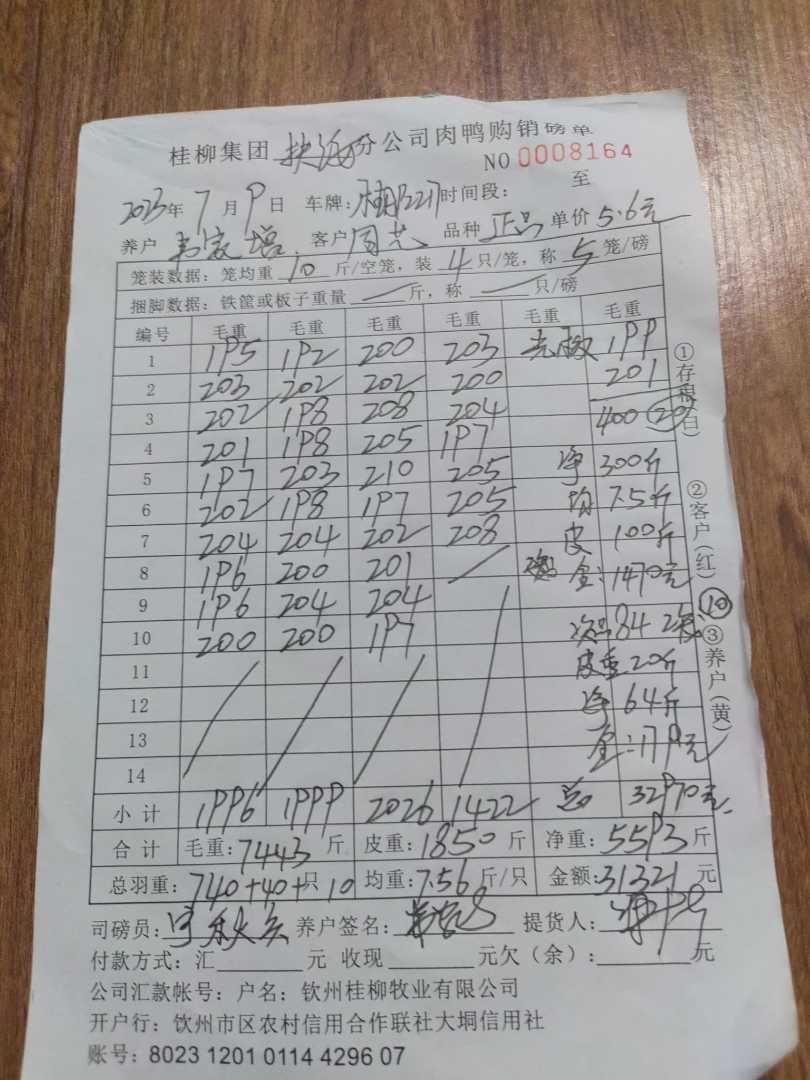 桂柳集团 分公司肉鸭购销磅单
NO 0008164
2023年 7月 9日 车牌: 时间段: 至
养户 韦家增 客户 周 品种 正品 单价 5.6元
笼装数据: 笼均重 10 斤/空笼, 装 4 只/笼, 称 5 笼/磅
捆脚数据: 铁筐或板子重量 — 斤, 称 — 只/磅
编号 毛重 毛重 毛重 毛重 毛重 毛重
1 195 192 200 203 199
2 203 202 202 200 201
3 202 198 208 204 400
4 201 198 205 197
5 197 203 210 205 净 300斤
6 202 198 197 205 均 7.5斤
7 204 204 202 208 皮 100斤
8 196 200 201 金: 1470元
9 196 204 204
10 200 200 197 次品 84 10
11 皮重 20斤
12 净 64斤
13 金: 179元
14
小计 1996 1999 2026 1422 总 32970元
合计 毛重: 7443 斤 皮重: 1850 斤 净重: 5593 斤
总羽重: 740+40+ 只 10 均重: 7.56 斤/只 金额: 31321 元
司磅员: 养户签名: 提货人:
付款方式: 汇 元 收现 元欠(余): 元
公司汇款帐号: 户名: 钦州桂柳牧业有限公司
开户行: 饮州市区农村信用合作联社大垌信用社
账号: 8023 1201 0114 4296 07
①存根(白)
②客户(红)
③养户(黄)